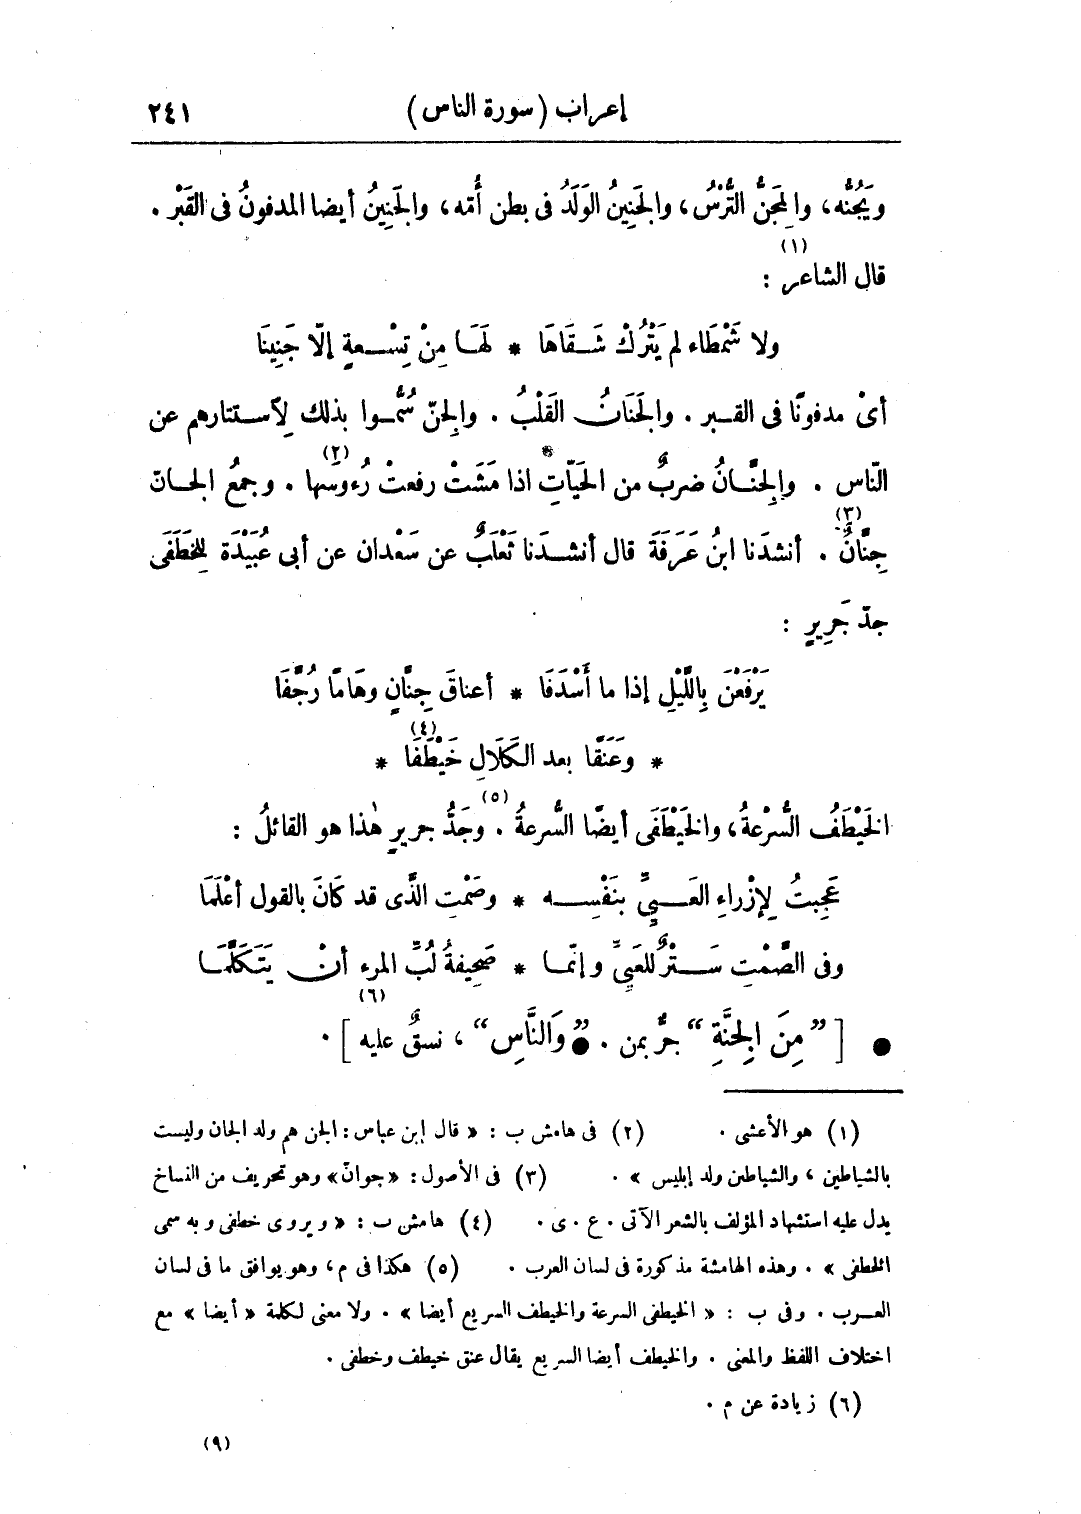 إعراب (سورة الناس) ٢٤١
ويَجُنُّه، والمِجَنُّ التُّرْسُ، والجَنِينُ الوَلَدُ فى بطن أُمّه، والجَنِينُ أيضا المدفونُ فى القَبْر .
قال الشاعر (١) :
ولا شَمْطَاء لم يَتْرُكْ شَقَاهَا * لَهَا مِنْ تِسْعةٍ إلّا جَنِينَا
أىْ مدفونًا فى القبر . والجَنَانُ القَلْبُ . والجِنّ سُمُّوا بذلك لِآستتارهم عن
النّاس . والجِنَّانُ ضربٌ من الحَيّاتِ اذا مَشَتْ رفعتْ رُءوسَها (٢) . وجمعُ الجانّ
جِنَّانٌ (٣) . أنشدَنا ابنُ عَرَفَةَ قال أنشدَنا ثَعْلَبٌ عن سَعْدان عن أبى عُبَيْدَة لِلخَطَفَى
جدّ جَرِيرٍ :
يَرْفَعْنَ بِاللَّيْلِ إذا ما أَسْدَفَا * أعناقَ جِنَّانٍ وهَامًا رُجَّفَا
* وعَنَقًا بعد الكَلَالِ خَيْطَفَا (٤) *
الخَيْطَفُ السُّرْعةُ، والخَيْطَفَى أيضًا السُّرعةُ (٥) . وجَدُّ جريرٍ هٰذا هو القائلُ :
عَجِبتُ لِإزْراءِ العَيِيِّ بنَفْسِه * وصَمْتِ الذَّى قد كَانَ بالقول أعْلَمَا
وفى الصَّمْتِ سَتْرٌ للعَيِيِّ وإنّما * صَحِيفةُ لُبِّ المرء أنْ يَتَكَلَّمَا
● [ ” مِنَ الجِنَّةِ “ جرٌّ بمن . ● ” وَالنَّاسِ “ ، نسقٌ عليه ] (٦) .
(١) هو الأعشى . (٢) فى هامش ب : « قال إبن عباس : الجن هم ولد الجان وليست
بالشياطين ، والشياطين ولد إبليس » . (٣) فى الأصول : « جوانّ » وهو تحريف من النساخ
يدل عليه استشهاد المؤلف بالشعر الآتى . ع . ى . (٤) هامش ب : « ويروى خطفى وبه سمى
الخطفى » . وهذه الهامشة مذكورة فى لسان العرب . (٥) هكذا فى م، وهو يوافق ما فى لسان
العرب . وفى ب : « الخيطفى السرعة والخيطف السريع أيضا » . ولا معنى لكلمة « أيضا » مع
اختلاف اللفظ والمعنى . والخيطف أيضا السريع يقال عنق خيطف وخطفى .
(٦) زيادة عن م .
(٩)